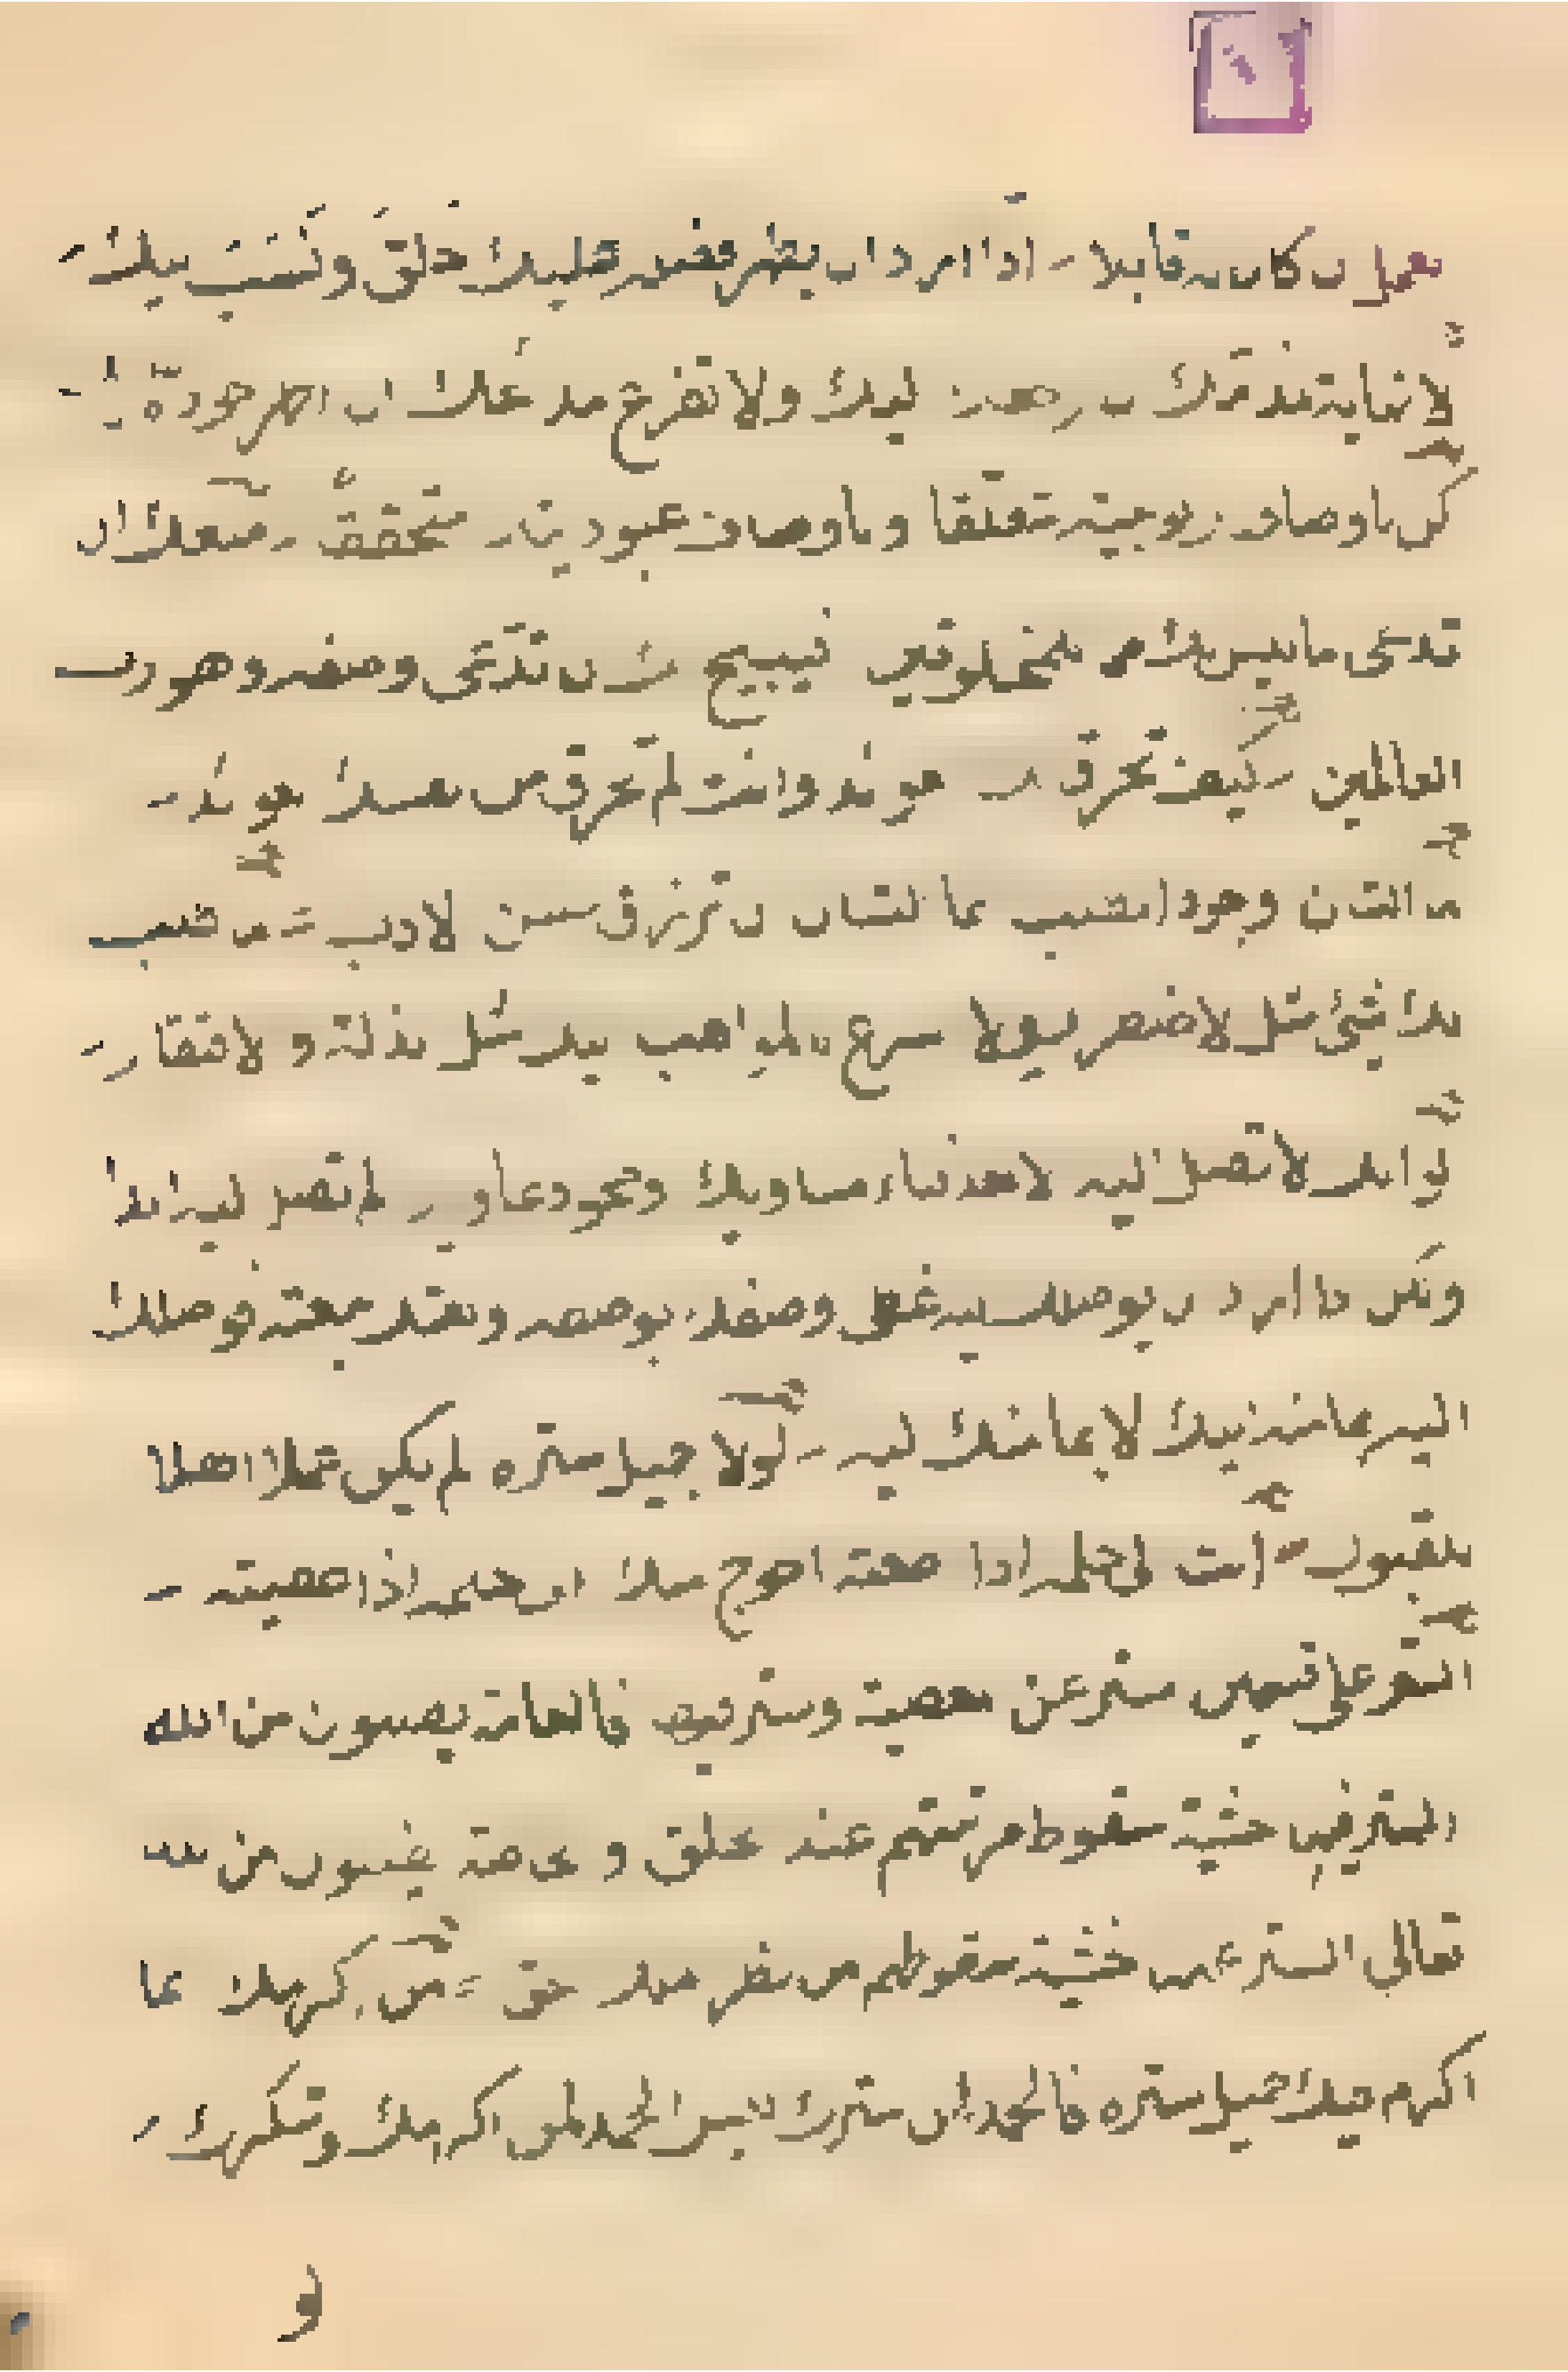 كان له قابلا اذا اراد ان يظهر فضله عليك خلق ونسب اليك
لا نهاية لمذامك ان ارجعك اليك ولا تفرغ مدائحك ان اظهر جوده
كن باوصاف ربوبيته متعلقا وباوصاف عبوديتك متحققا منعك ان
تدعي ما ليس لك مما للمخلوقين افيبيح لك ان تدعي وصفه وهو رب
العالمين كيف تخرق لك العوائد وانت لم تخرق من نفسك العوائد
ما الشان وجود الطلب انما الشان ان ترزق حسن الادب ما طلب
لك شيء مثل الاضطرار ولا اسرع بالمواهب اليك مثل الذلة والافتقار
لو انك لا تصل اليه الا بعد فناء مساويك ومحو دعاويك لم تصل اليه ابدا
ولكن اذا اراد ان يوصلك اليه غطى وصفك بوصفه ونعتك بنعته فوصلك
اليه بما منه اليك لا بما منك اليه لولا جميل ستره لم يكن عملك اهلا
للقبول انت الى حلمه اذا اطعته احوج منك الى حلمه اذا عصيته
الستر على قسمين ستر عن المعصية وستر فيها فالعامة يطلبون من الله
الستر فيها خشية سقوط مرتبتهم عند الخلق والخاصة يطلبون من الله
تعالى الستر عنها خشية سقوطهم من نظر الملك الحق من اكرمك انما
اكرم فيك جميل ستره فالحمد لمن سترك ليس الحمد لمن اكرمك وشكرك